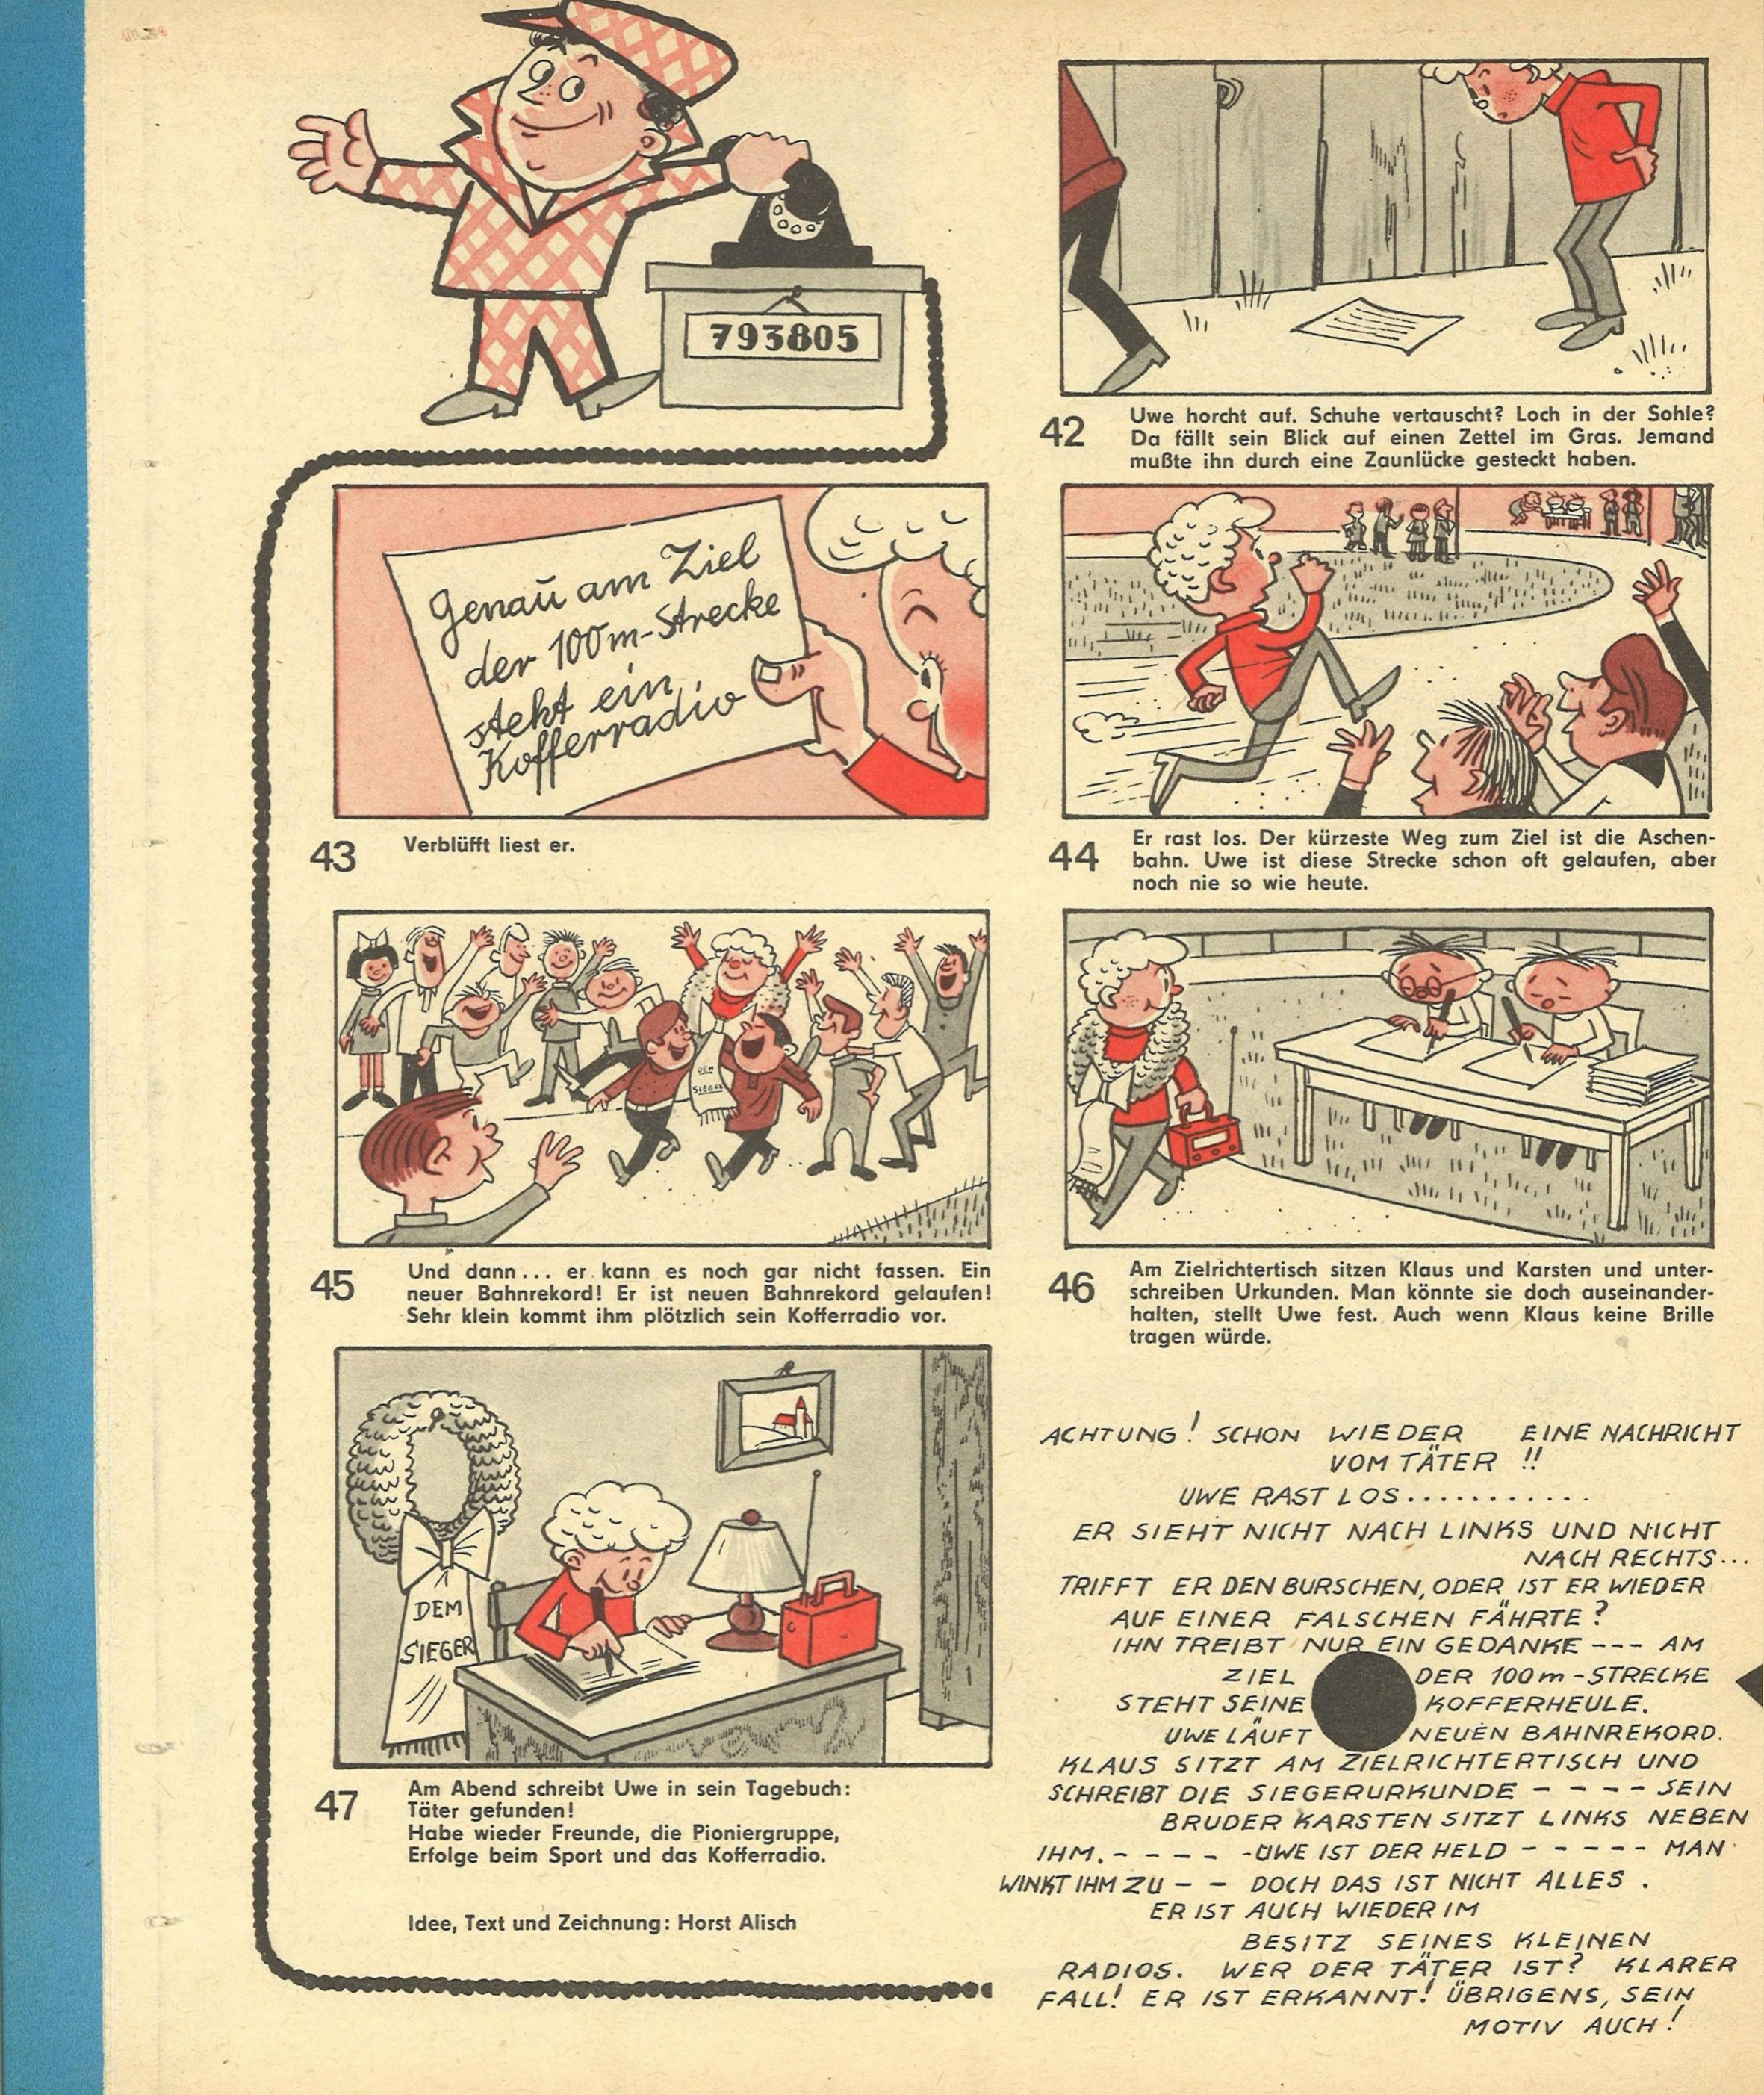 793805
42
Uwe horcht auf. Schuhe vertauscht? Loch in der Sohle?
Da fällt sein Blick auf einen Zettel im Gras. Jemand
mußte ihn durch eine Zaunlücke gesteckt haben.
Genau am Ziel
der 100m-Strecke
steht ein
Kofferradio
43
Verblüfft liest er.
44
Er rast los. Der kürzeste Weg zum Ziel ist die Aschen-
bahn. Uwe ist diese Strecke schon oft gelaufen, aber
noch nie so wie heute.
DEM
SIEGER
45
Und dann... er kann es noch gar nicht fassen. Ein
neuer Bahnrekord! Er ist neuen Bahnrekord gelaufen!
Sehr klein kommt ihm plötzlich sein Kofferradio vor.
46
Am Zielrichtertisch sitzen Klaus und Karsten und unter-
schreiben Urkunden. Man könnte sie doch auseinander-
halten, stellt Uwe fest. Auch wenn Klaus keine Brille
tragen würde.
DEM
SIEGER
47
Am Abend schreibt Uwe in sein Tagebuch:
Täter gefunden!
Habe wieder Freunde, die Pioniergruppe,
Erfolge beim Sport und das Kofferradio.
Idee, Text und Zeichnung: Horst Alisch
ACHTUNG! SCHON WIEDER EINE NACHRICHT
VOM TÄTER !!
UWE RAST LOS...........
ER SIEHT NICHT NACH LINKS UND NICHT
NACH RECHTS...
TRIFFT ER DEN BURSCHEN, ODER IST ER WIEDER
AUF EINER FALSCHEN FÄHRTE?
IHN TREIBT NUR EIN GEDANKE --- AM
ZIEL DER 100m-STRECKE
STEHT SEINE KOFFERHEULE.
UWE LÄUFT NEUEN BAHNREKORD.
KLAUS SITZT AM ZIELRICHTERTISCH UND
SCHREIBT DIE SIEGERURKUNDE - - - - SEIN
BRUDER KARSTEN SITZT LINKS NEBEN
IHM. - - - - -UWE IST DER HELD - - - - - MAN
WINKT IHM ZU - - DOCH DAS IST NICHT ALLES .
ER IST AUCH WIEDER IM
BESITZ SEINES KLEINEN
RADIOS. WER DER TÄTER IST? KLARER
FALL! ER IST ERKANNT! ÜBRIGENS, SEIN
MOTIV AUCH!